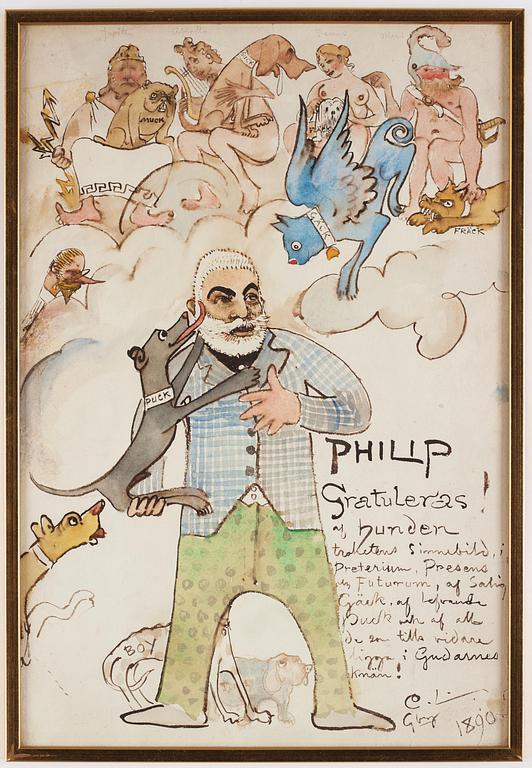 Jupiter
Apollo
Venus
Mars
MUCK
GÄCK
FRÄCK
PUCK
BOY
PHILIP
Gratuleras!
af hunden
trohetens Sinnebild, i
Preterium, Presens
Futurum, af Salig
Gäck, af lefvande
Puck af alla
De som tills vidare
ligga i Gudarnes
knän!
C.L.
Gbg 1890